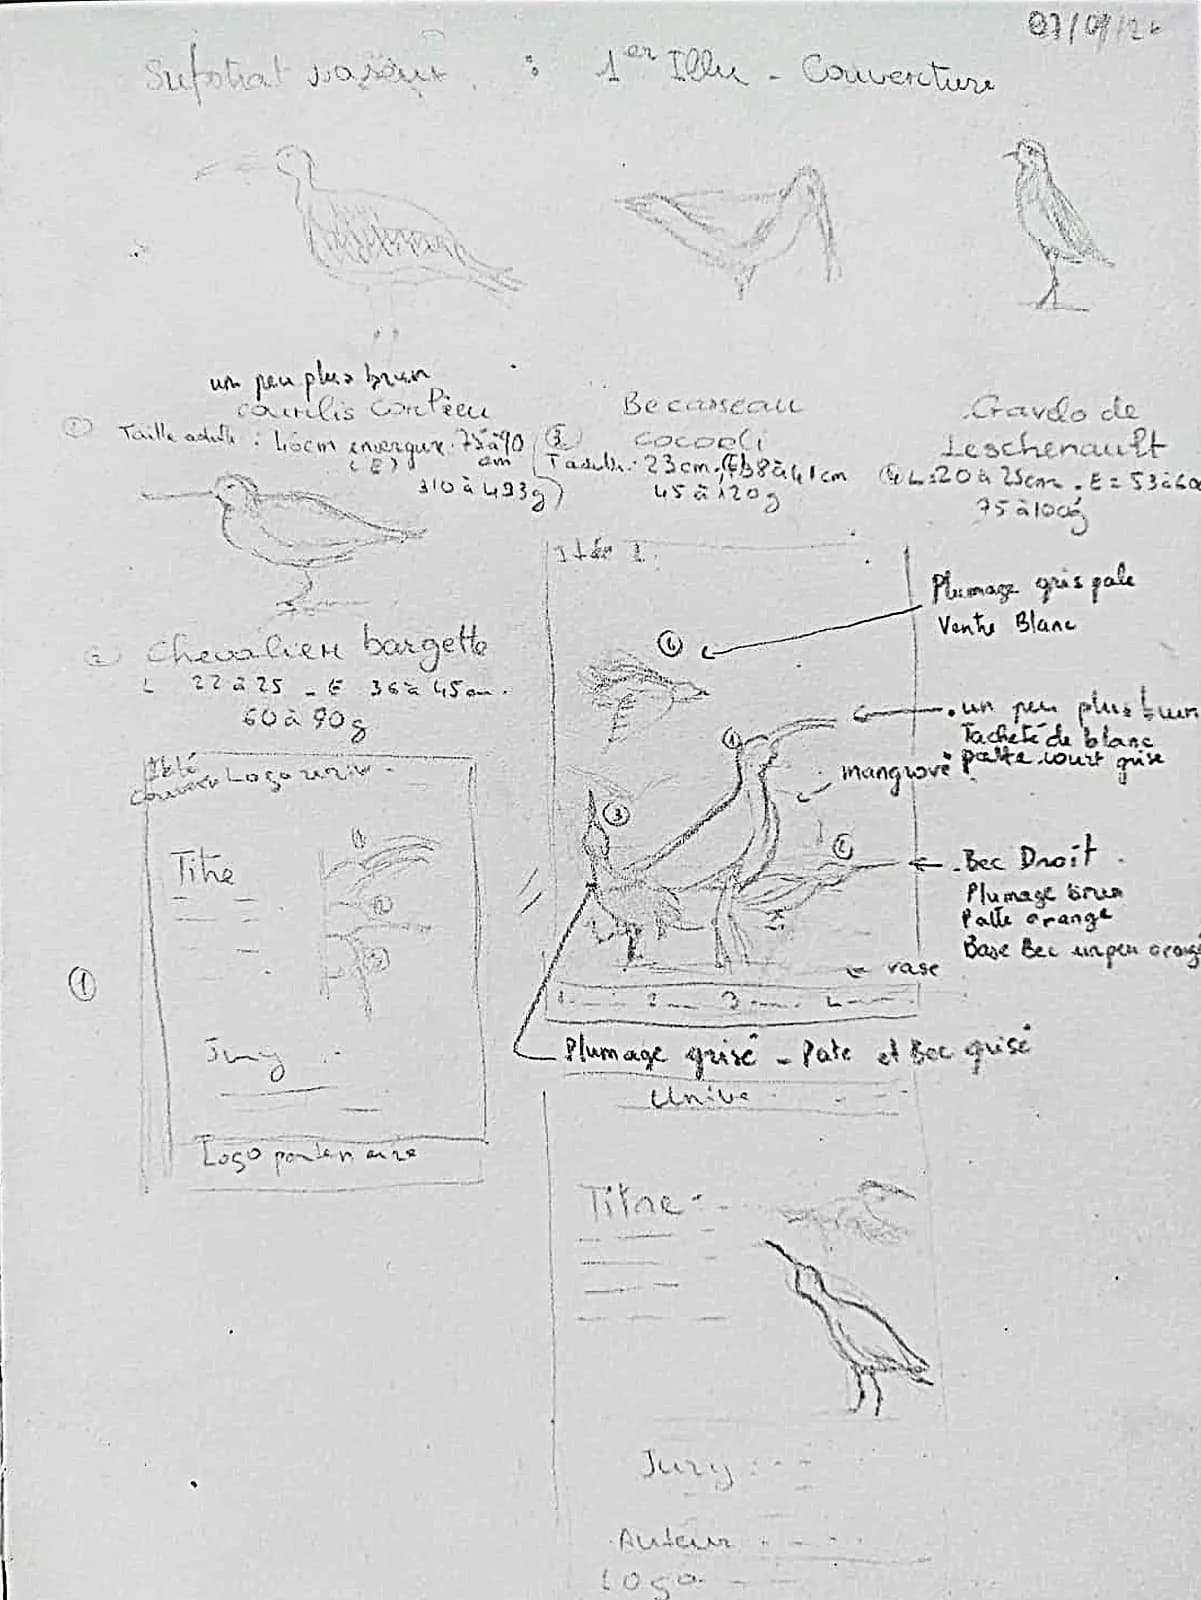 Substrat vaseux : 1er Illu - Couverture
un peu plus brun
courlis corlieu
Taille adulte : 40cm envergure 75 à 90
(E) cm
310 à 493g)
Becasseau
cocorli
T adulte: 23 cm, (E) 38 à 41 cm
45 à 120g
Gravelo de
Leschenault
L = 20 à 25cm . E = 53 à 60
75 à 100g
② Chevalier bargette
L 22 à 25 - E 36 à 45 cm.
60 à 90g
Idée 1
Plumage gris pale
Ventre Blanc
④
. un peu plus brun
Tacheté de blanc
patte court grise
①
mangrove
③
②
. Bec Droit .
Plumage brun
Patte orange
Base Bec un peu orange
vase
1 -- 2 -- 3 -- 4 --
Plumage grisé - Pate et Bec grisé
Logo univ -
Titre
①
②
③
①
Jury ..
Logo partenaire
Unive
Titre - - -
Jury : - -
Auteur - - -
Logo - -